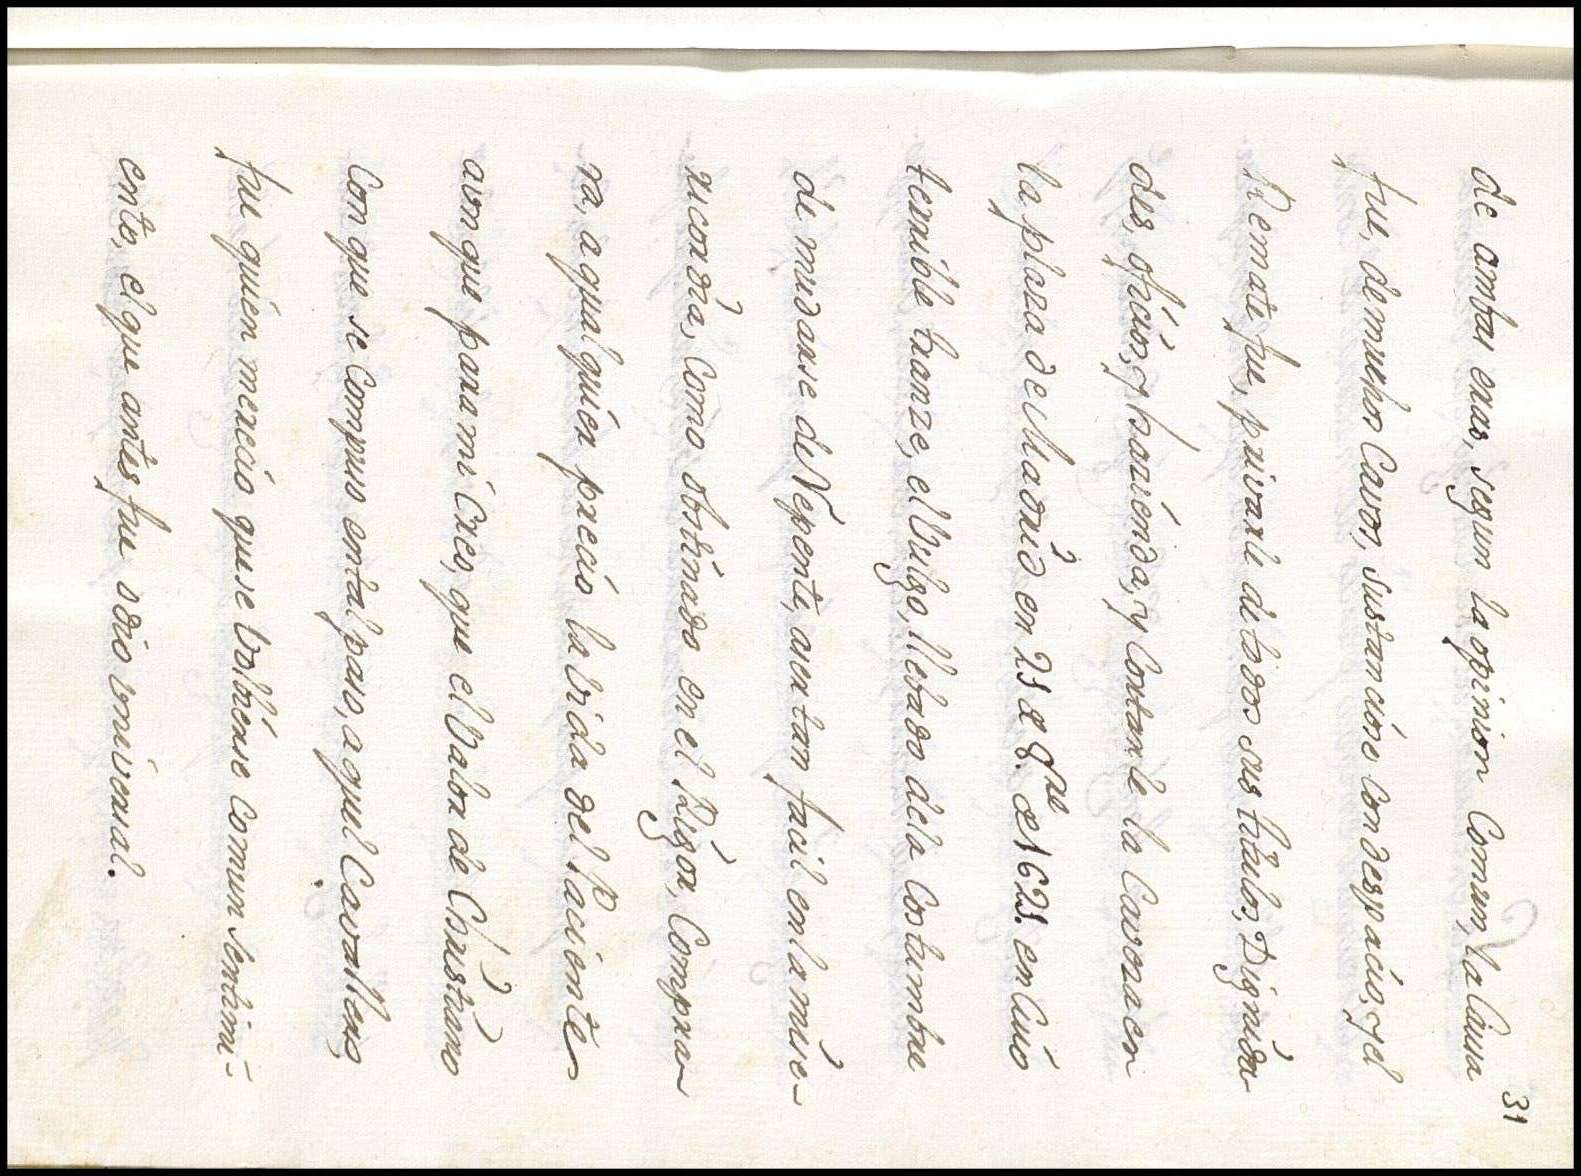 31
de ambas eras, segun la opinion Comun, la Causa
fue, de mucho Cavor, sustanciòse con despacio, y el
Remate fue, privarle de todos sus titulos, Dignida-
des, oficios, y hacienda, y Contarle la Caveza en
la plaza de Madrid en 21 de 8.re de 1621. en Cuio
terrible tranze, el Vulgo, llebado dela Costumbre
de mudarse de Repente, aun tan facil en la mise-
ricordia, Como obstinado en el Rigor, Compra-
ra, a qualquier precio la vida del Paciente
aunque para mi Creo, que el Valor de Christiano
Con que se Compuso en tal paso, aquel Cavallero,
fue quien mereciò que se bolbiese comun sentimi-
ento, el que antes fue odio universal.